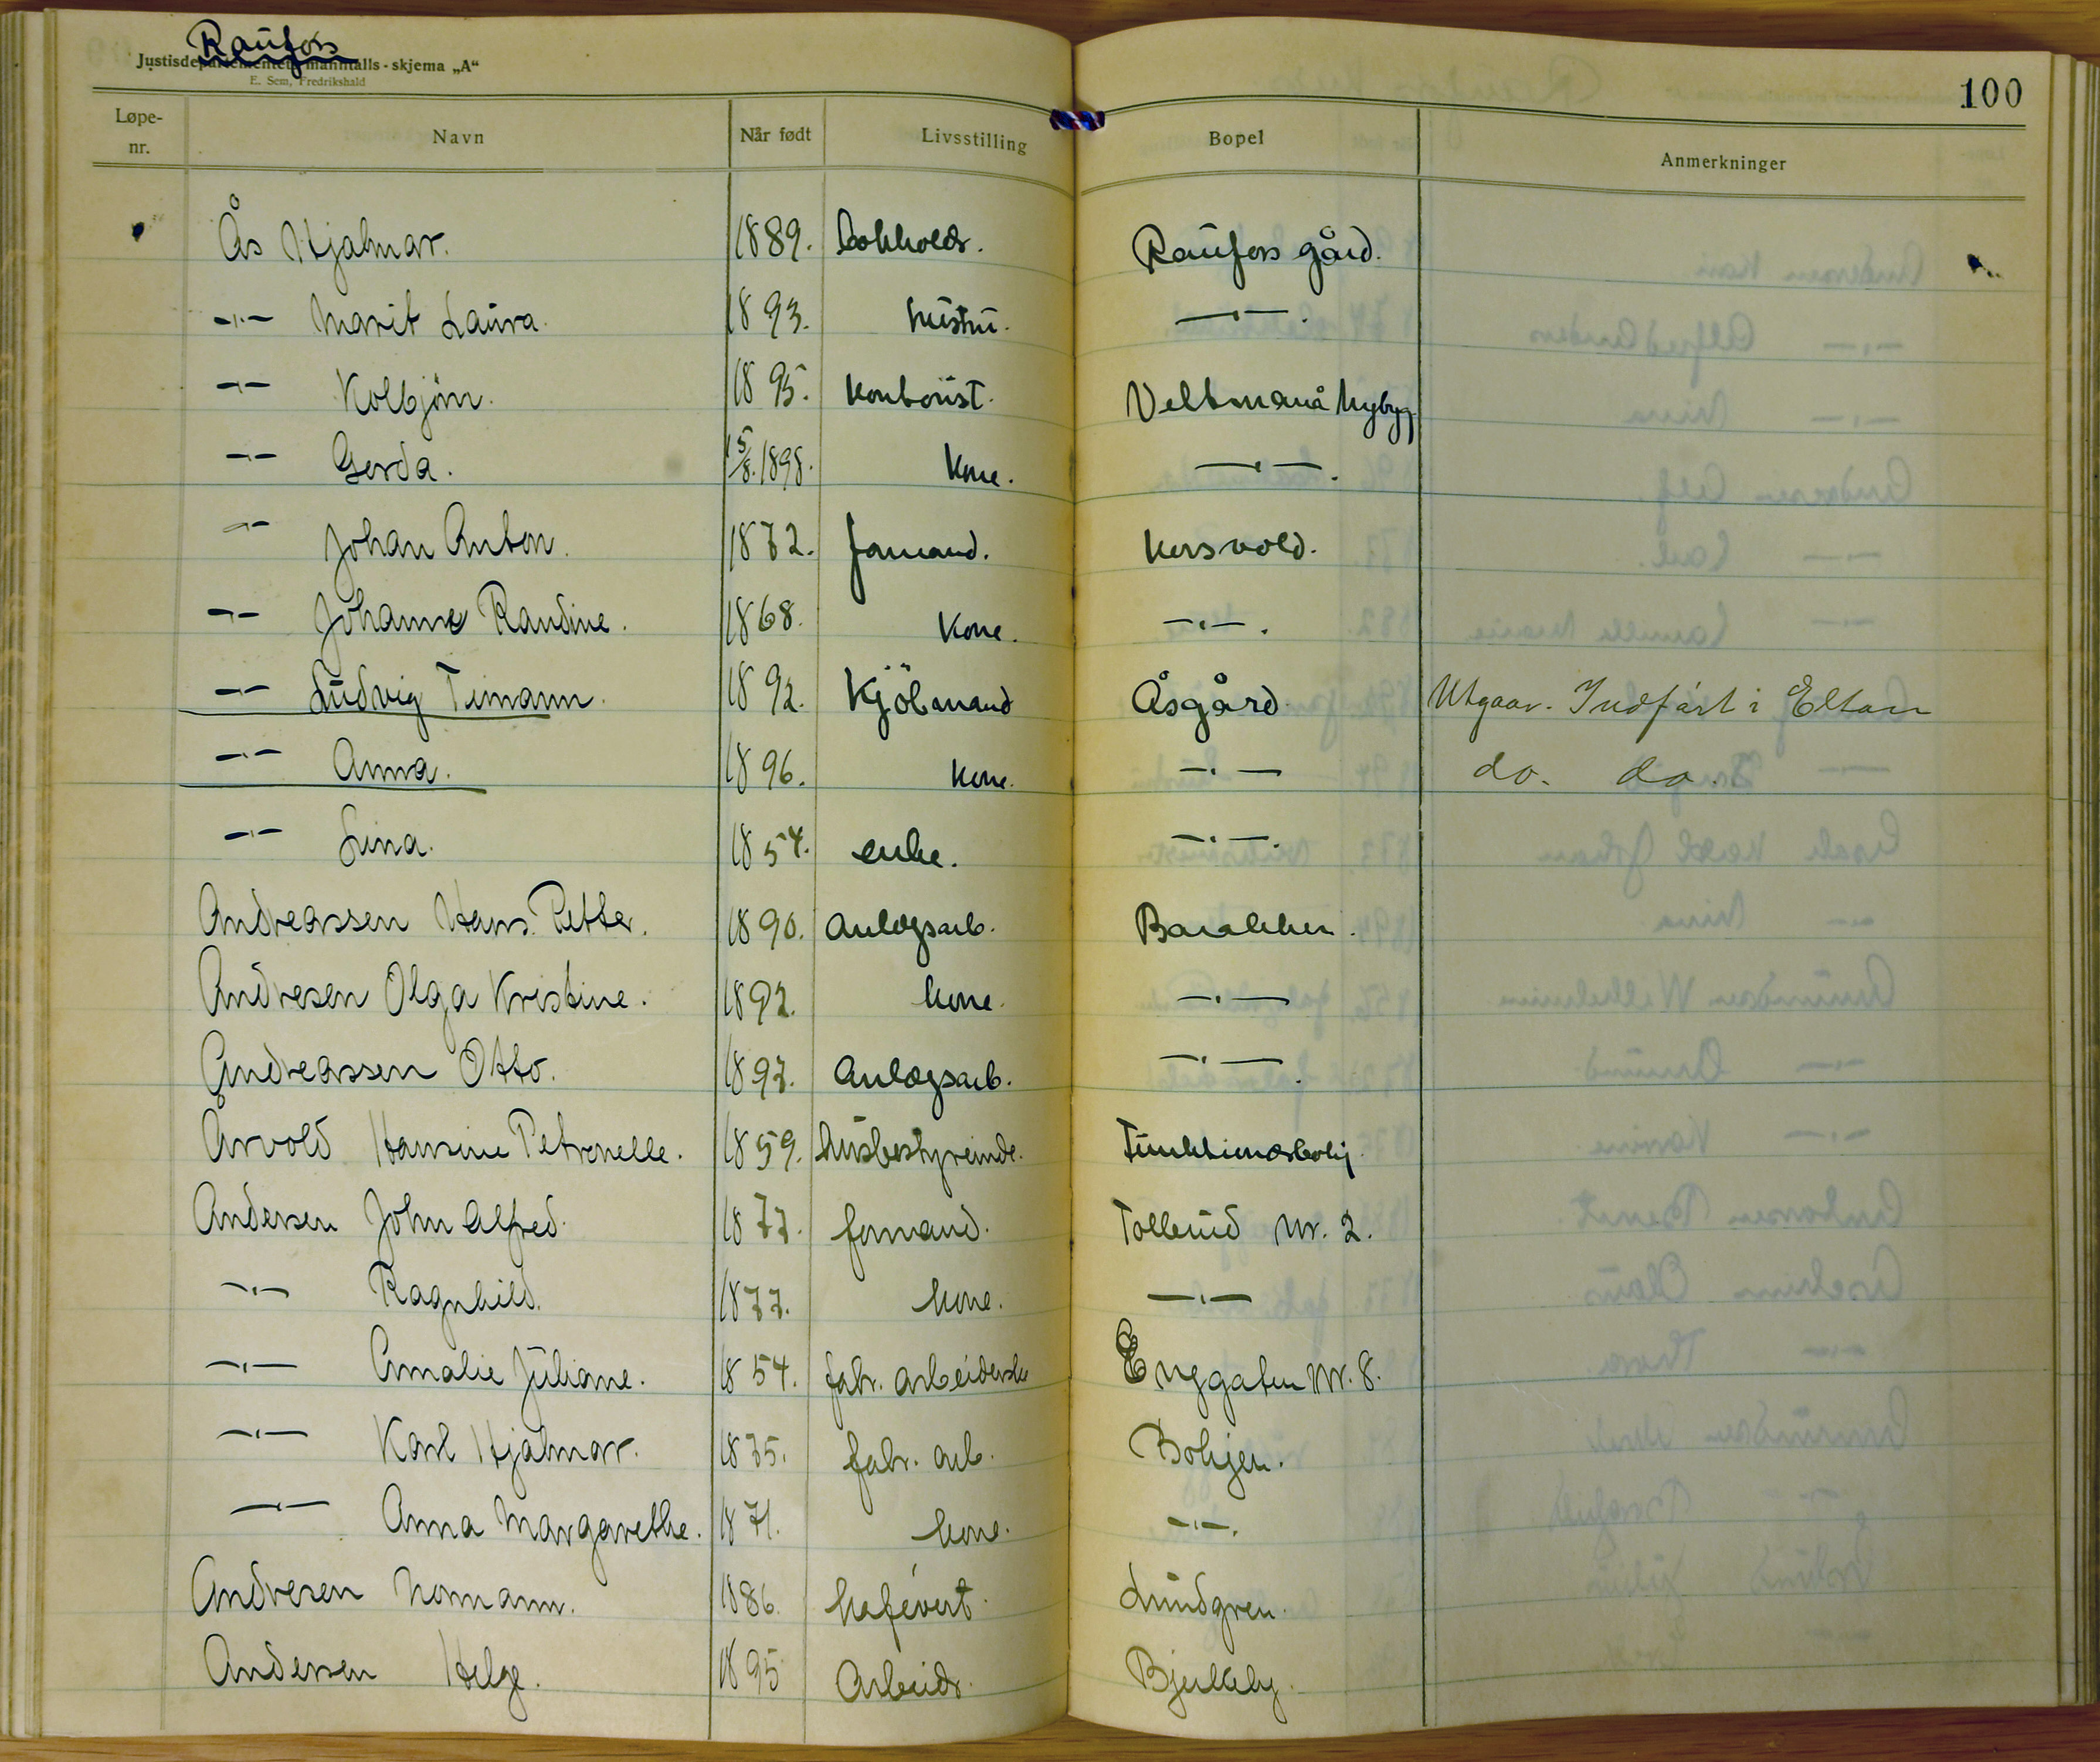 Raufoss
Justisdepartementets manntalls-skjema „A“
E. Sem, Fredrikshald
100
Løpe-nr. Navn Når født Livsstilling Bopel Anmerkninger
Ås Hjalmar. 1889. Bokholdr. Raufoss gård.
-"- Marit Laura. 1893. hustru. -"-.
-"- Kolbjörn. 1895. Kontorist. Veltmanå Nybyg
-"- Gerda. 15/8.1898. Kone. -"-.
-"- Johan Anton. 1872. formand. Korsvold.
-"- Johanne Randine. 1868. Kone. -"-.
-"- Ludvig Timann. 1892. Kjöbmand Åsgård Utgaar. Indført i Eltan
-"- Anna. 1896. Kone. -"- do. do.
-"- Lina. 1854. enke. -"-.
Andreassen Hans Petter. 1890. Anlægsarb. Barakken.
Andresen Olga Kristine. 1892. Kone. -"-
Andreassen Otto. 1897. Anlægsarb. -"-.
Årvold Hansine Petronelle. 1859. Husbestyreinde. Funktionærbolig.
Andersen John Alfred. 1877. formand. Tollerud Nr. 2.
-"- Ragnhild. 1877. Kone. -"-
-"- Amalie Juliane. 1854. fabr. arbeiderske Enggaten Nr. 8.
-"- Karl Hjalmar. 1875. fabr. arb. Boligen.
-"- Anna Margarethe. 1871. Kone. -"-.
Andresen Normann. 1886. Kafévert. Lundgren.
Andersen Helge. 1895 Arbeidr. Bjerkeby.